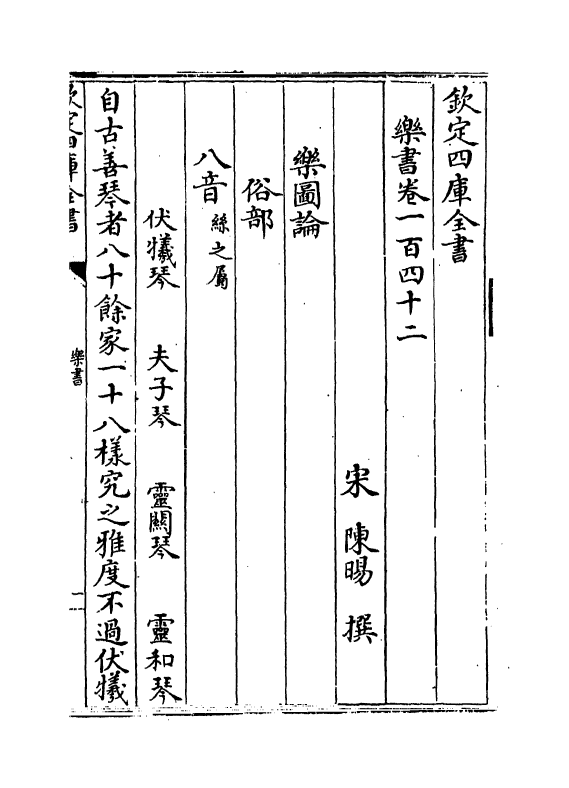 欽定四庫全書
樂書卷一百四十二
宋 陳暘 撰
樂圖論
俗部
八音 絲之屬
伏犧琴 夫子琴 靈關琴 靈和琴
自古善琴者八十餘家一十八樣究之雅度不過伏犧
欽定四庫全書
樂書
一